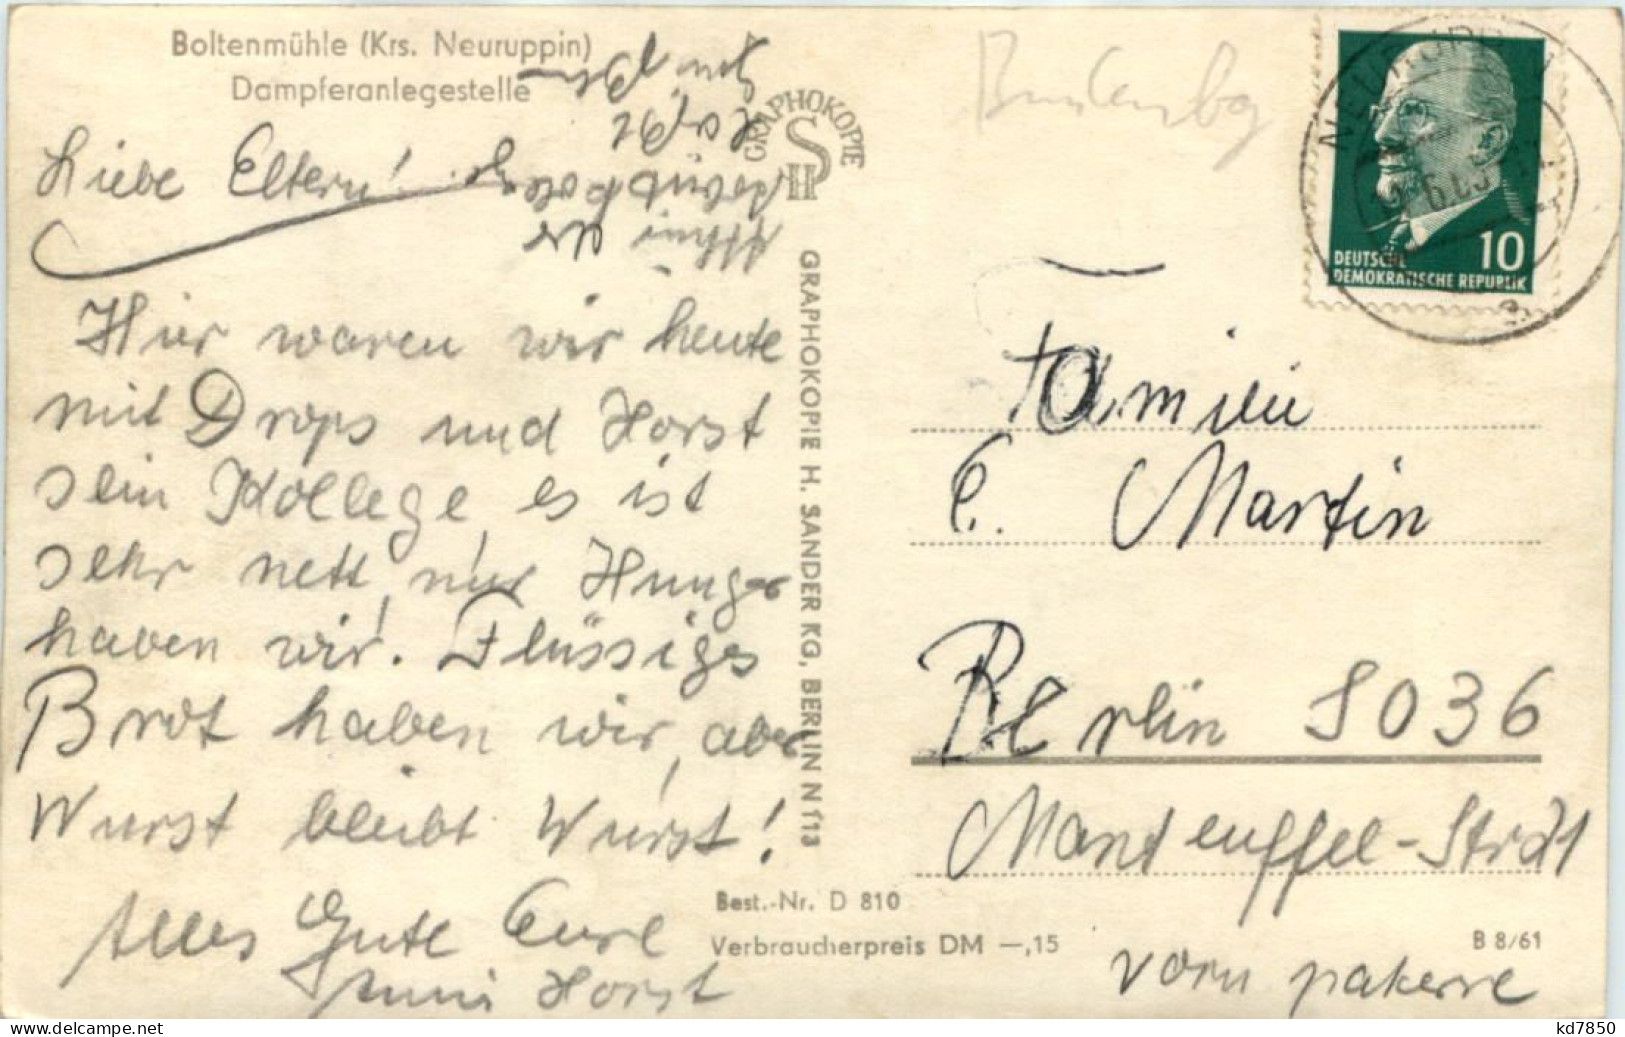 Boltenmühle (Krs. Neuruppin)
Dampferanlegestelle
Liebe Eltern!
Hier waren wir heute
mit Drops und Horst
sein Kollege, es ist
sehr nett, nur Hunger
haben wir. Flüssiges
Brot haben wir, aber
Wurst bleibt Wurst!
Alles Gute Eure
Horst
GRAPHOKOPIE
SH
GRAPHOKOPIE H. SANDER KG, BERLIN N f13
Best.-Nr. D 810
Verbraucherpreis DM —,15
B 8/61
10
DEUTSCHE
DEMOKRATISCHE REPUBLIK
Familie
E. Martin
Berlin SO36
Manteuffel-Str.
vorn
kd7850
www.delcampe.net